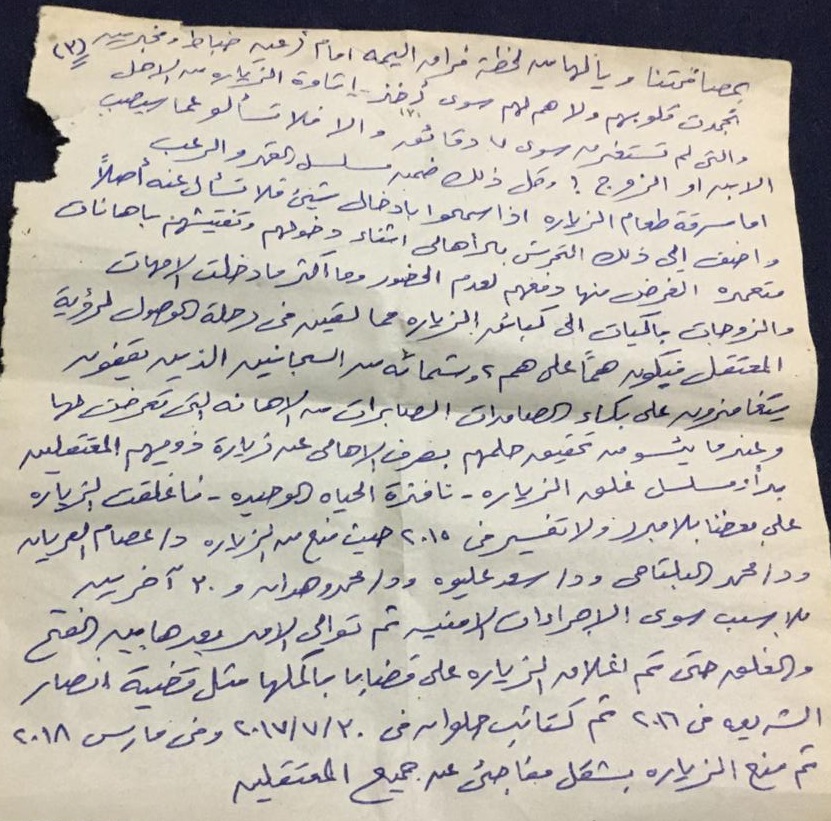 بمصافحتنا ويالها من لحظة فراق اليمه امام أعين ضباط ومخبرين (٣)
تجمدت قلوبهم ولا هم لهم سوى أخذ إتاوة الزياره من الاهل
والتى لم تستغرق سوى ٧ دقائق والا فلا تسألو عما سيصيب
الابن او الزوج ؟ وكل ذلك ضمن مسلسل القهر والرعب
اما سرقة طعام الزياره اذا سمحوا بادخال شيئ فلا تسأل عنه أصلاً
واضف الى ذلك التحرش بالأهالى اثناء دخولهم وتفتيشهم باهانات
متعمده الغرض منها دفعهم لعدم الحضور وما أكثر ما دخلت الامهات
والزوجات باكيات الى كبائن الزياره مما لقين فى رحلة الوصول لرؤية
المعتقل فيكون هماً على هم ، وشماته من السجانين الذين يقفون
يتغامزون على بكاء الصامدات الصابرات من الاهانه التى تعرضن لها
وعندما يئسو من تحقيق حلمهم بصرف الاهالى عن زيارة ذويهم المعتقلين
بدأو مسلسل غلق الزياره - نافذة الحياه الوحيده - فاغلقت الزياره
على بعضنا بلا مبرر ولا تفسير فى ٢٠١٥ حيث منع من الزياره د/ عصام العريان
ود/ محمد البلتاجى ود/ سعد عليوه ود/ محمد وهدان و ٣٠ آخرين
بلا سبب سوى الاجراءات الامنيه ثم توالى الامر بعدها بين الفتح
والغلق حتى تم اغلاق الزياره على قضايا باكملها مثل قضية انصار
الشريعه فى ٢٠١٦ ثم كتائب حلوان فى ٢٠١٧/٧/٣٠ وفى مارس ٢٠١٨
تم منع الزياره بشكل مفاجئ عن جميع المعتقلين